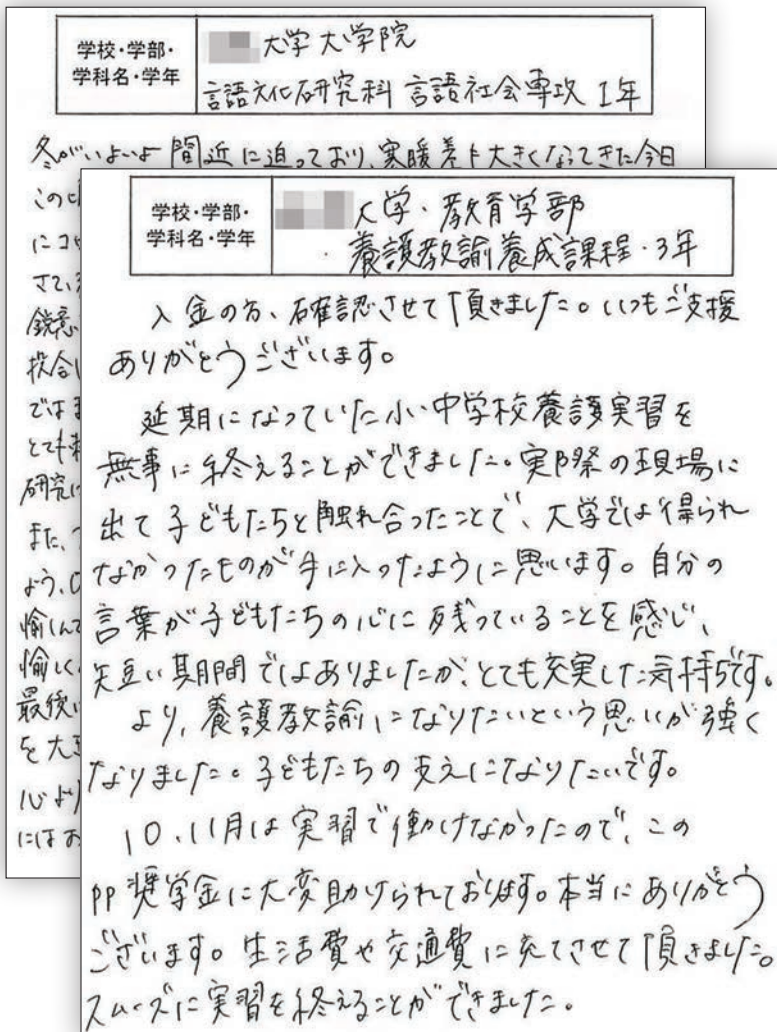 学校・学部・
学科名・学年
大学 大学院
言語文化研究科 言語社会専攻 1年
冬がいよいよ間近に迫っており、寒暖差も大きくなってきた今日
この
に
さて、
鋭意
投合し
では
とても
研究に
また、
よう、
愉しんで
愉しく
最後に
を大
心より
にはお
学校・学部・
学科名・学年
大学・教育学部
養護教諭養成課程・3年
入金の方、確認させて頂きました。いつもご支援
ありがとうございます。
延期になっていた小・中学校養護実習を
無事に終えることができました。実際の現場に
出て子どもたちと触れ合ったことで、大学では得られ
なかったものが手に入ったように思います。自分の
言葉が子どもたちの心に残っていることを感じ、
短い期間ではありましたが、とても充実した気持ちです。
より、養護教諭になりたいという思いが強く
なりました。子どもたちの支えになりたいです。
10、11月は実習で働けなかったので、この
PP奨学金に大変助けられております。本当にありがとう
ございます。生活費や交通費に充てさせて頂きました。
スムーズに実習を終えることができました。